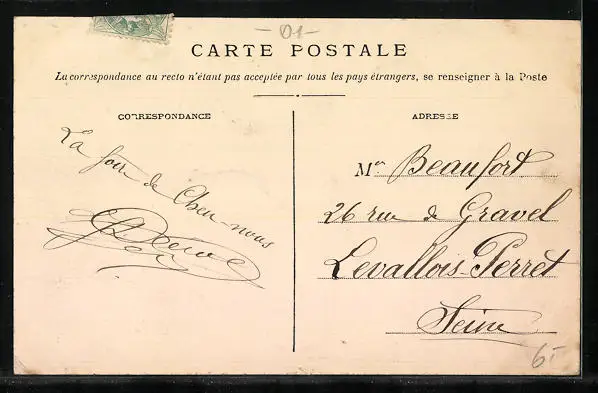 - 01 -
CARTE POSTALE
La correspondance au recto n'étant pas acceptée par tous les pays étrangers, se renseigner à la Poste
CORRESPONDANCE
La foire de Chez nous
ADRESSE
Mr Beaufort
26 rue de Gravel
Levallois-Perret
Seine
6-